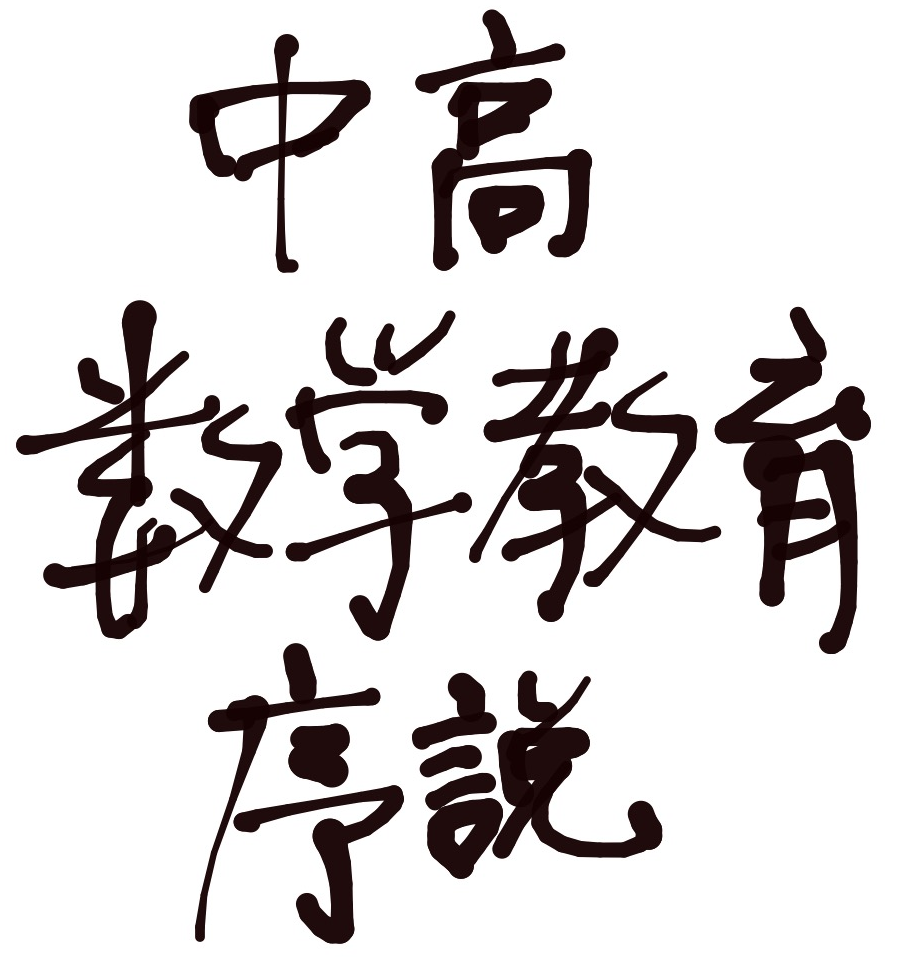 中高
数学教育
序説